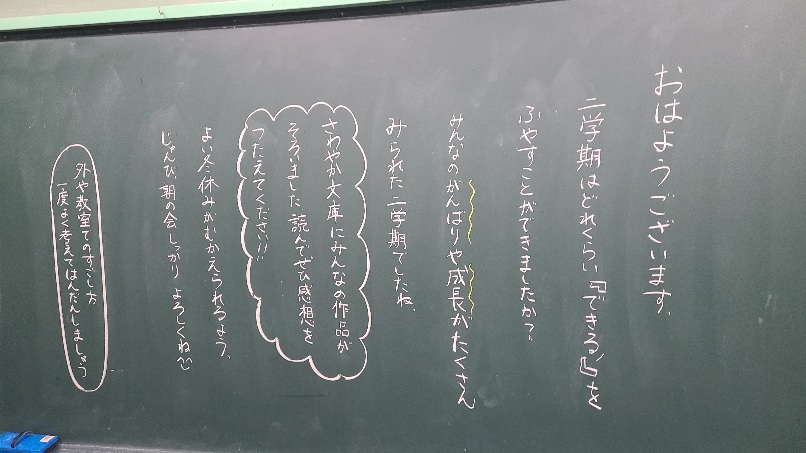 おはようございます。
二学期はどれくらい『できる』を
ふやすことができましたか?
みんなのがんばりや成長がたくさん
みられた二学期でしたね。
さわやか文庫にみんなの作品が
そろいました 読んでぜひ感想を
つたえてください!!
よい冬休みがむかえられるよう、
じゅんび、朝の会しっかり よろしくね
外や教室でのすごし方
一度よく考えてはんだんしましょう